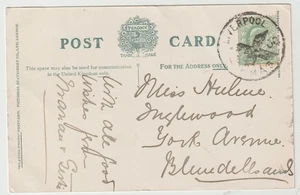 POST CARD
This space may also be used for communication
in the United Kingdom only.
FOR ADDRESS ONLY.
With all good
wishes from
Marian &
Miss Hulme
Inglewood
York Avenue
Blundellsands